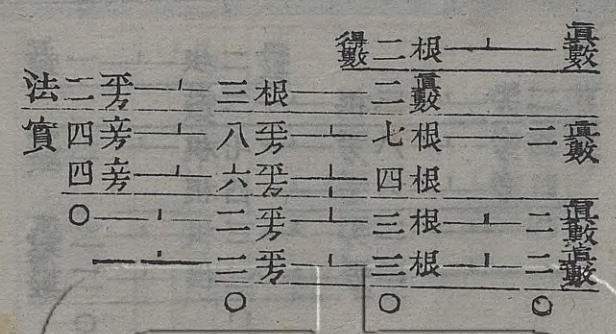 得數二根⊥一真數
法二平方⊥三根⊥二真數
實四立方⊥八平方⊥七根⊥二真數
四立方⊥六平方⊥四根
〇⊥二平方⊥三根⊥二真數
⊥二平方⊥三根⊥二真數
〇 〇 〇